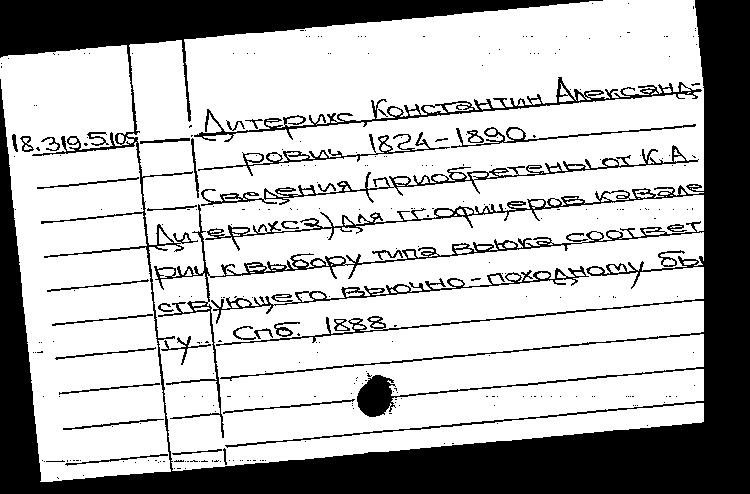 18.319.5.105 Дитерихс, Константин Александ-
рович, 1824-1890.
Сведения (приобретены от К.А.
Дитерихса) для гг. офицеров кавале
рии к выбору типа вьюка, соответ
ствующего вьючно-походному бы
ту... Спб., 1888.